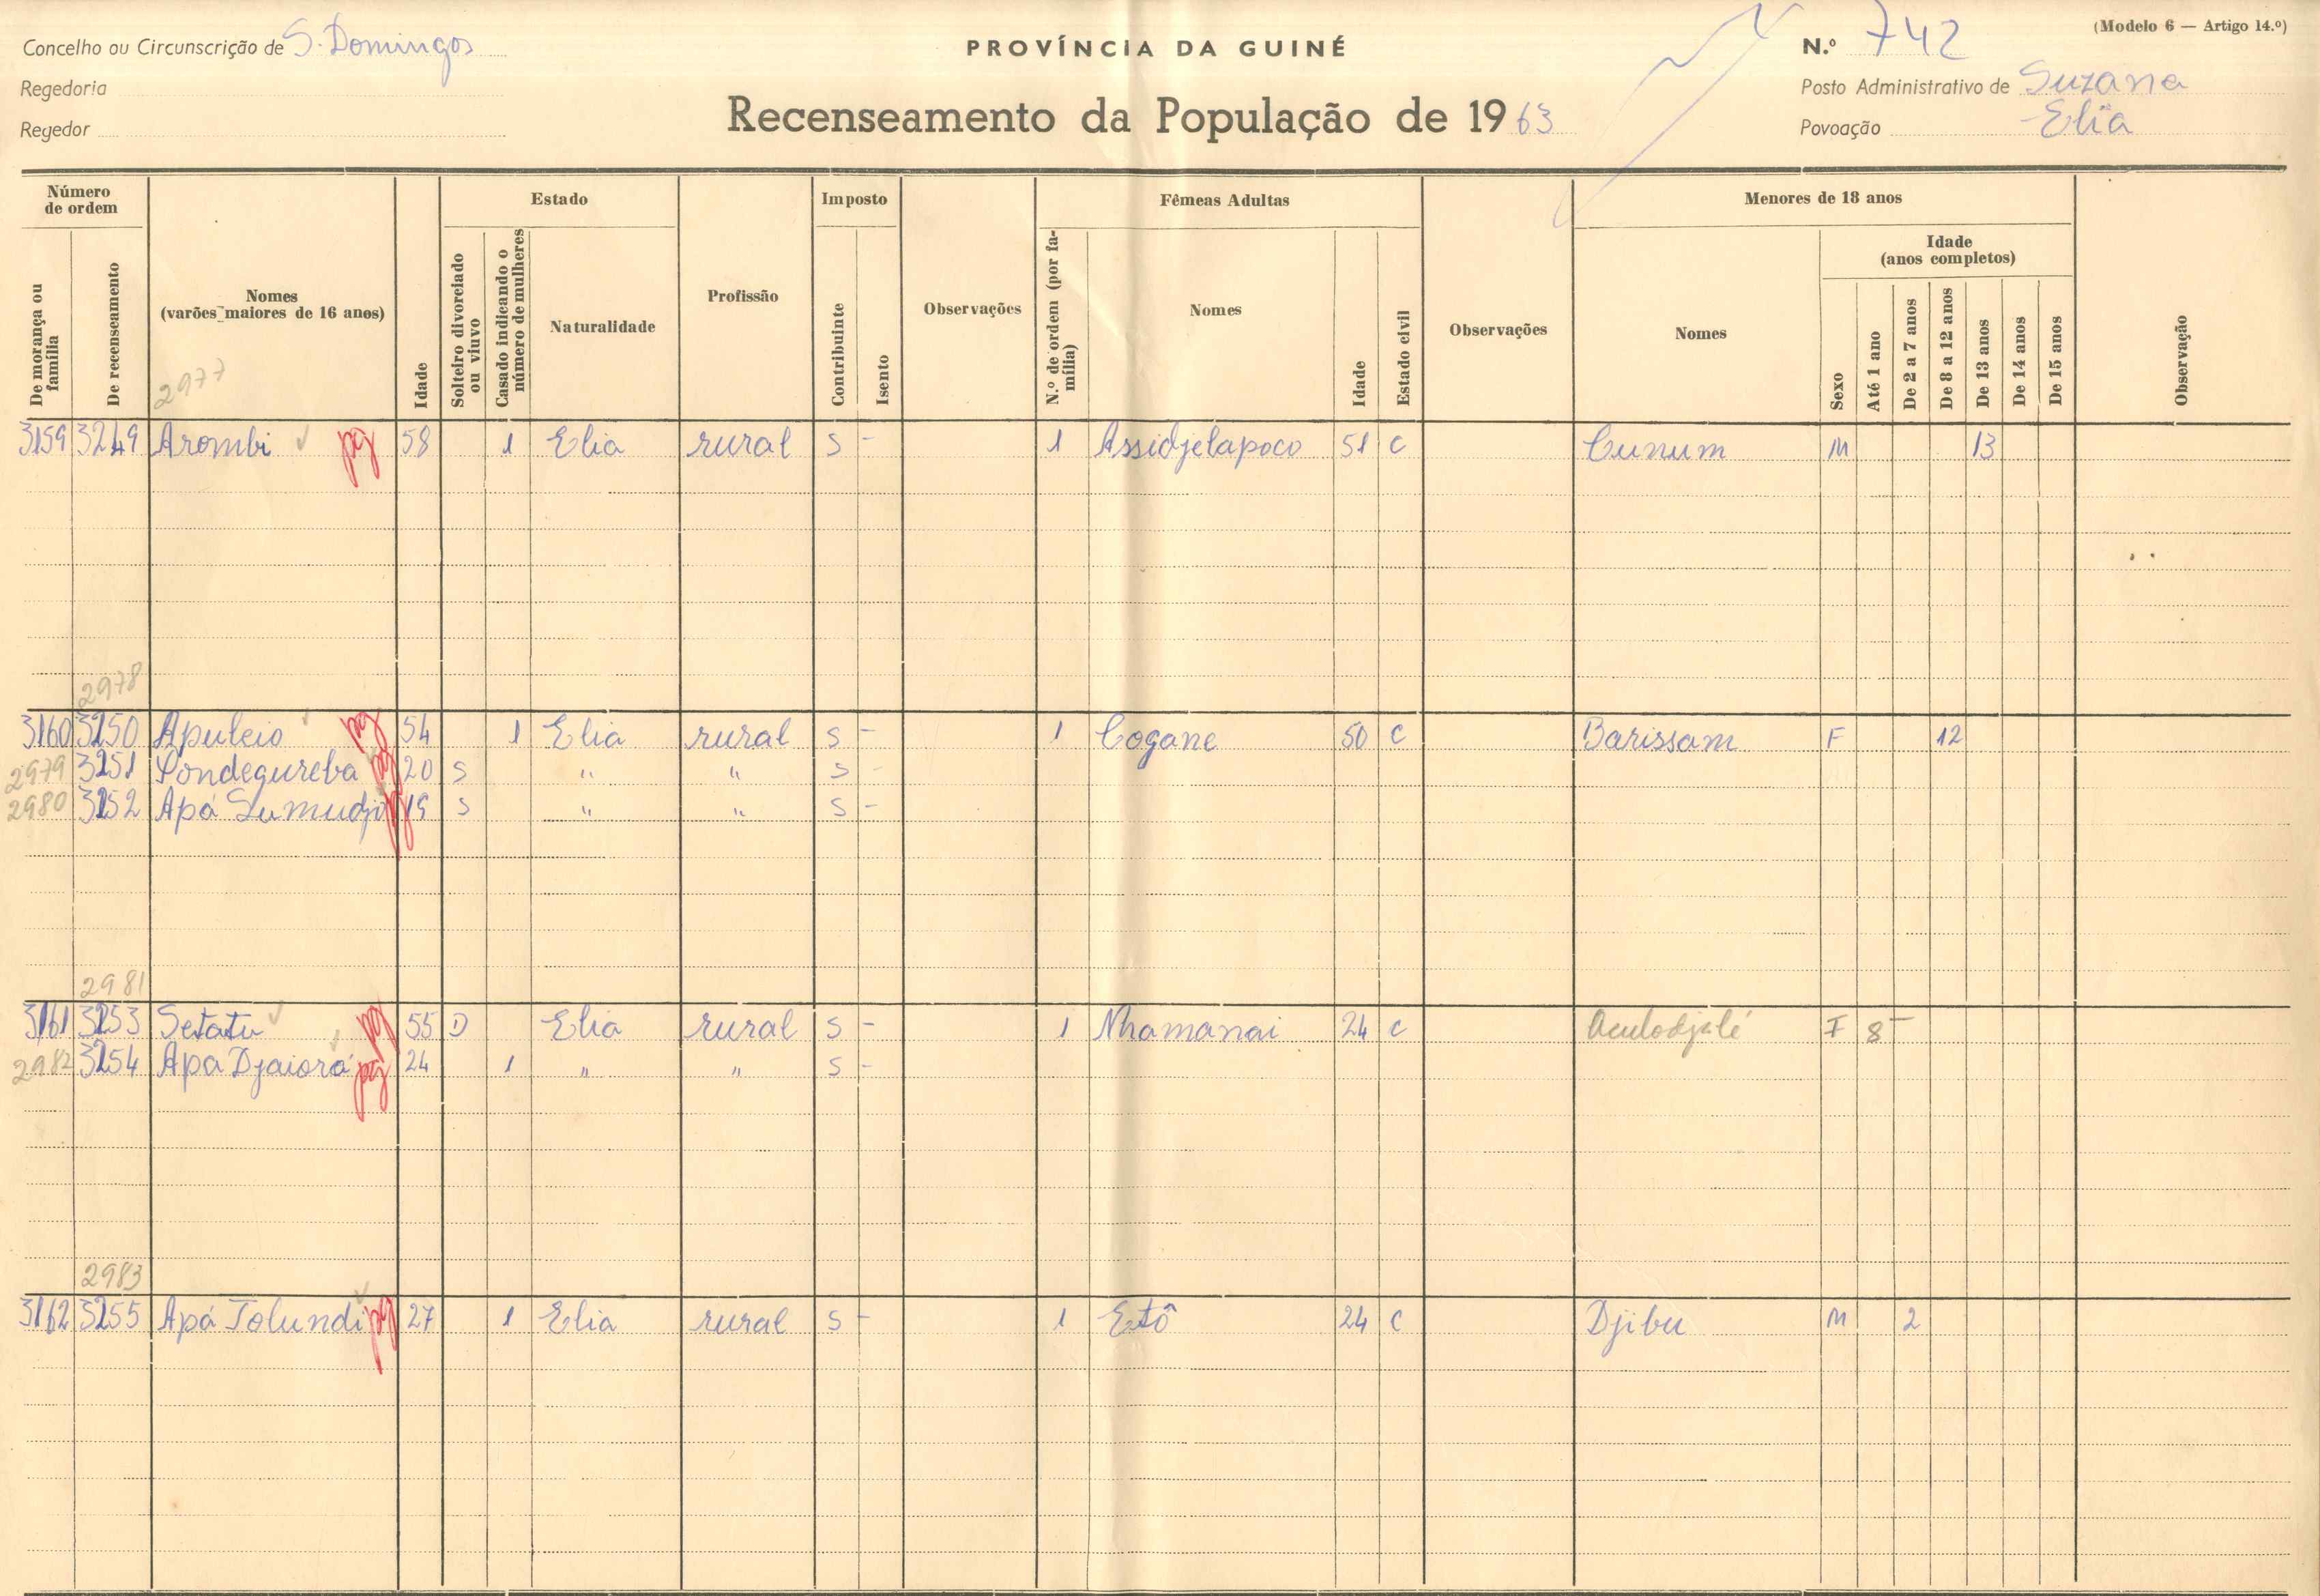 (Modelo 6 — Artigo 14.º)
Concelho ou Circunscrição de S. Domingos
PROVÍNCIA DA GUINÉ
N.º 742
Regedoria
Posto Administrativo de Suzana
Regedor
Recenseamento da População de 1963
Povoação Elia
Número de ordem
Estado
Imposto
Fêmeas Adultas
Menores de 18 anos
Idade (anos completos)
De morança ou família
De recenseamento
Nomes (varões maiores de 16 anos)
Idade
Solteiro divorciado ou viuvo
Casado indicando o número de mulheres
Naturalidade
Profissão
Contribuinte
Isento
Observações
N.º de ordem (por família)
Nomes
Idade
Estado civil
Observações
Nomes
Sexo
Até 1 ano
De 2 a 7 anos
De 8 a 12 anos
De 13 anos
De 14 anos
De 15 anos
Observação
2977
3159 3249 Arombi pg 58 1 Elia rural S - 1 Assidjelapoco 51 C Cunum M 13
2978
3160 3250 Apuleio pg 54 1 Elia rural S - 1 Cogane 50 C Barissam F 12
2979 3251 pg 20 S " " S -
2980 3252 Apá Sumudjo pg 19 S " " S -
2981
3161 3253 Setatu pg 55 D Elia rural S - 1 Nhamanai 24 C Aculodjalé F 8
2982 3254 Apa Djaiorá pg 24 1 " " S -
2983
3162 3255 Apá Tolundi pg 27 1 Elia rural S - 1 Etô 24 C Djibu M 2